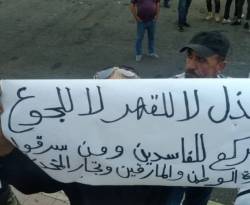 لذل لا للقهر لا للجوع
ركع للفاسدين ومن سرقو
الوطن والمارقين وتجار